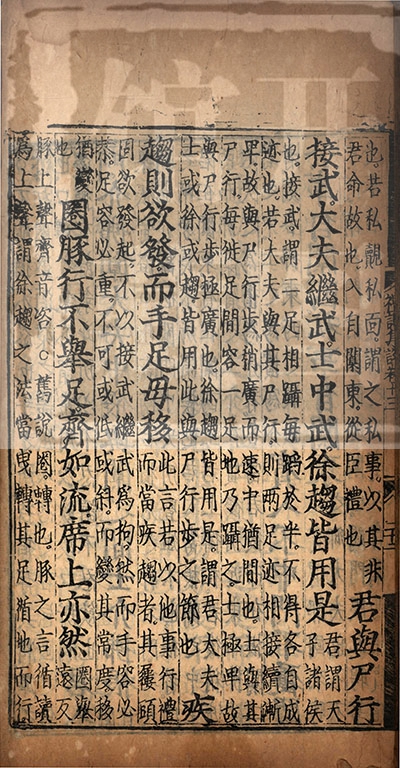 也若私覿私面謂之私事以其非
君命故也入自闑東從臣禮也
君與尸行
接武大夫繼武士中武徐趨皆用是
君謂天
子諸侯
也接武謂二足相躡每蹈於半不得各自成
迹也若大夫與其尸行則兩足迹相接續漸
卑故與尸行步稍廣而速中猶間也士與其
尸行每徙足間容一足地乃躡之士極卑故
與尸行步極廣也徐趨皆用是謂君大夫
士或徐或趨皆用此與尸行步之節也
疾
趨則欲發而手足毋移
此言若以事行禮
而當疾趨者其屨頭
固欲發起不以接武繼武為拘然而手容必
恭足容必重不可或低或斜而變其常度移
猶變
也
圈豚行不舉足齊如流席上亦然
圈舉
遠反
豚上聲齊音咨○舊說圈轉也豚之言循讀
為上聲謂徐趨之法當曳轉其足循地而行